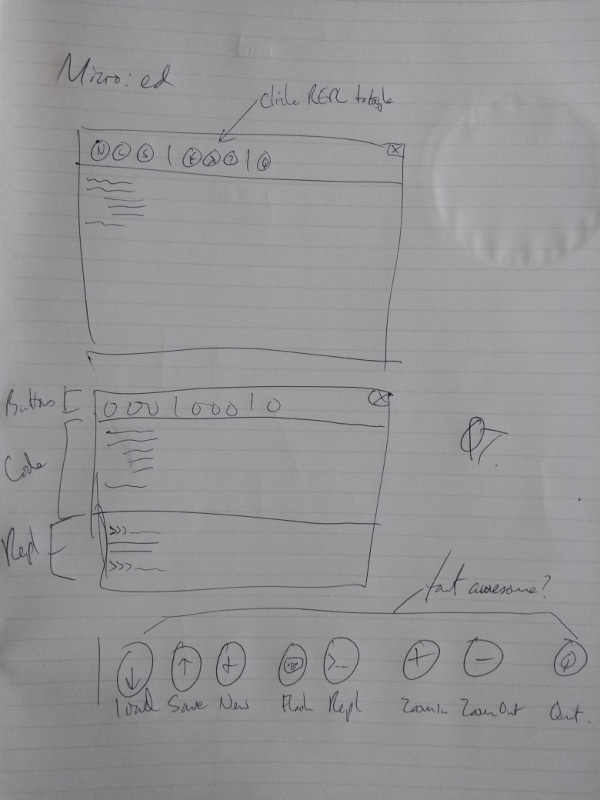 Micro:ed
click REPL to toggle
N L S | F | Q
X
Buttons
Code
Repl
>>>
>>>
QT
font awesome?
Load Save New Flash Repl Zoom In Zoom Out Quit.